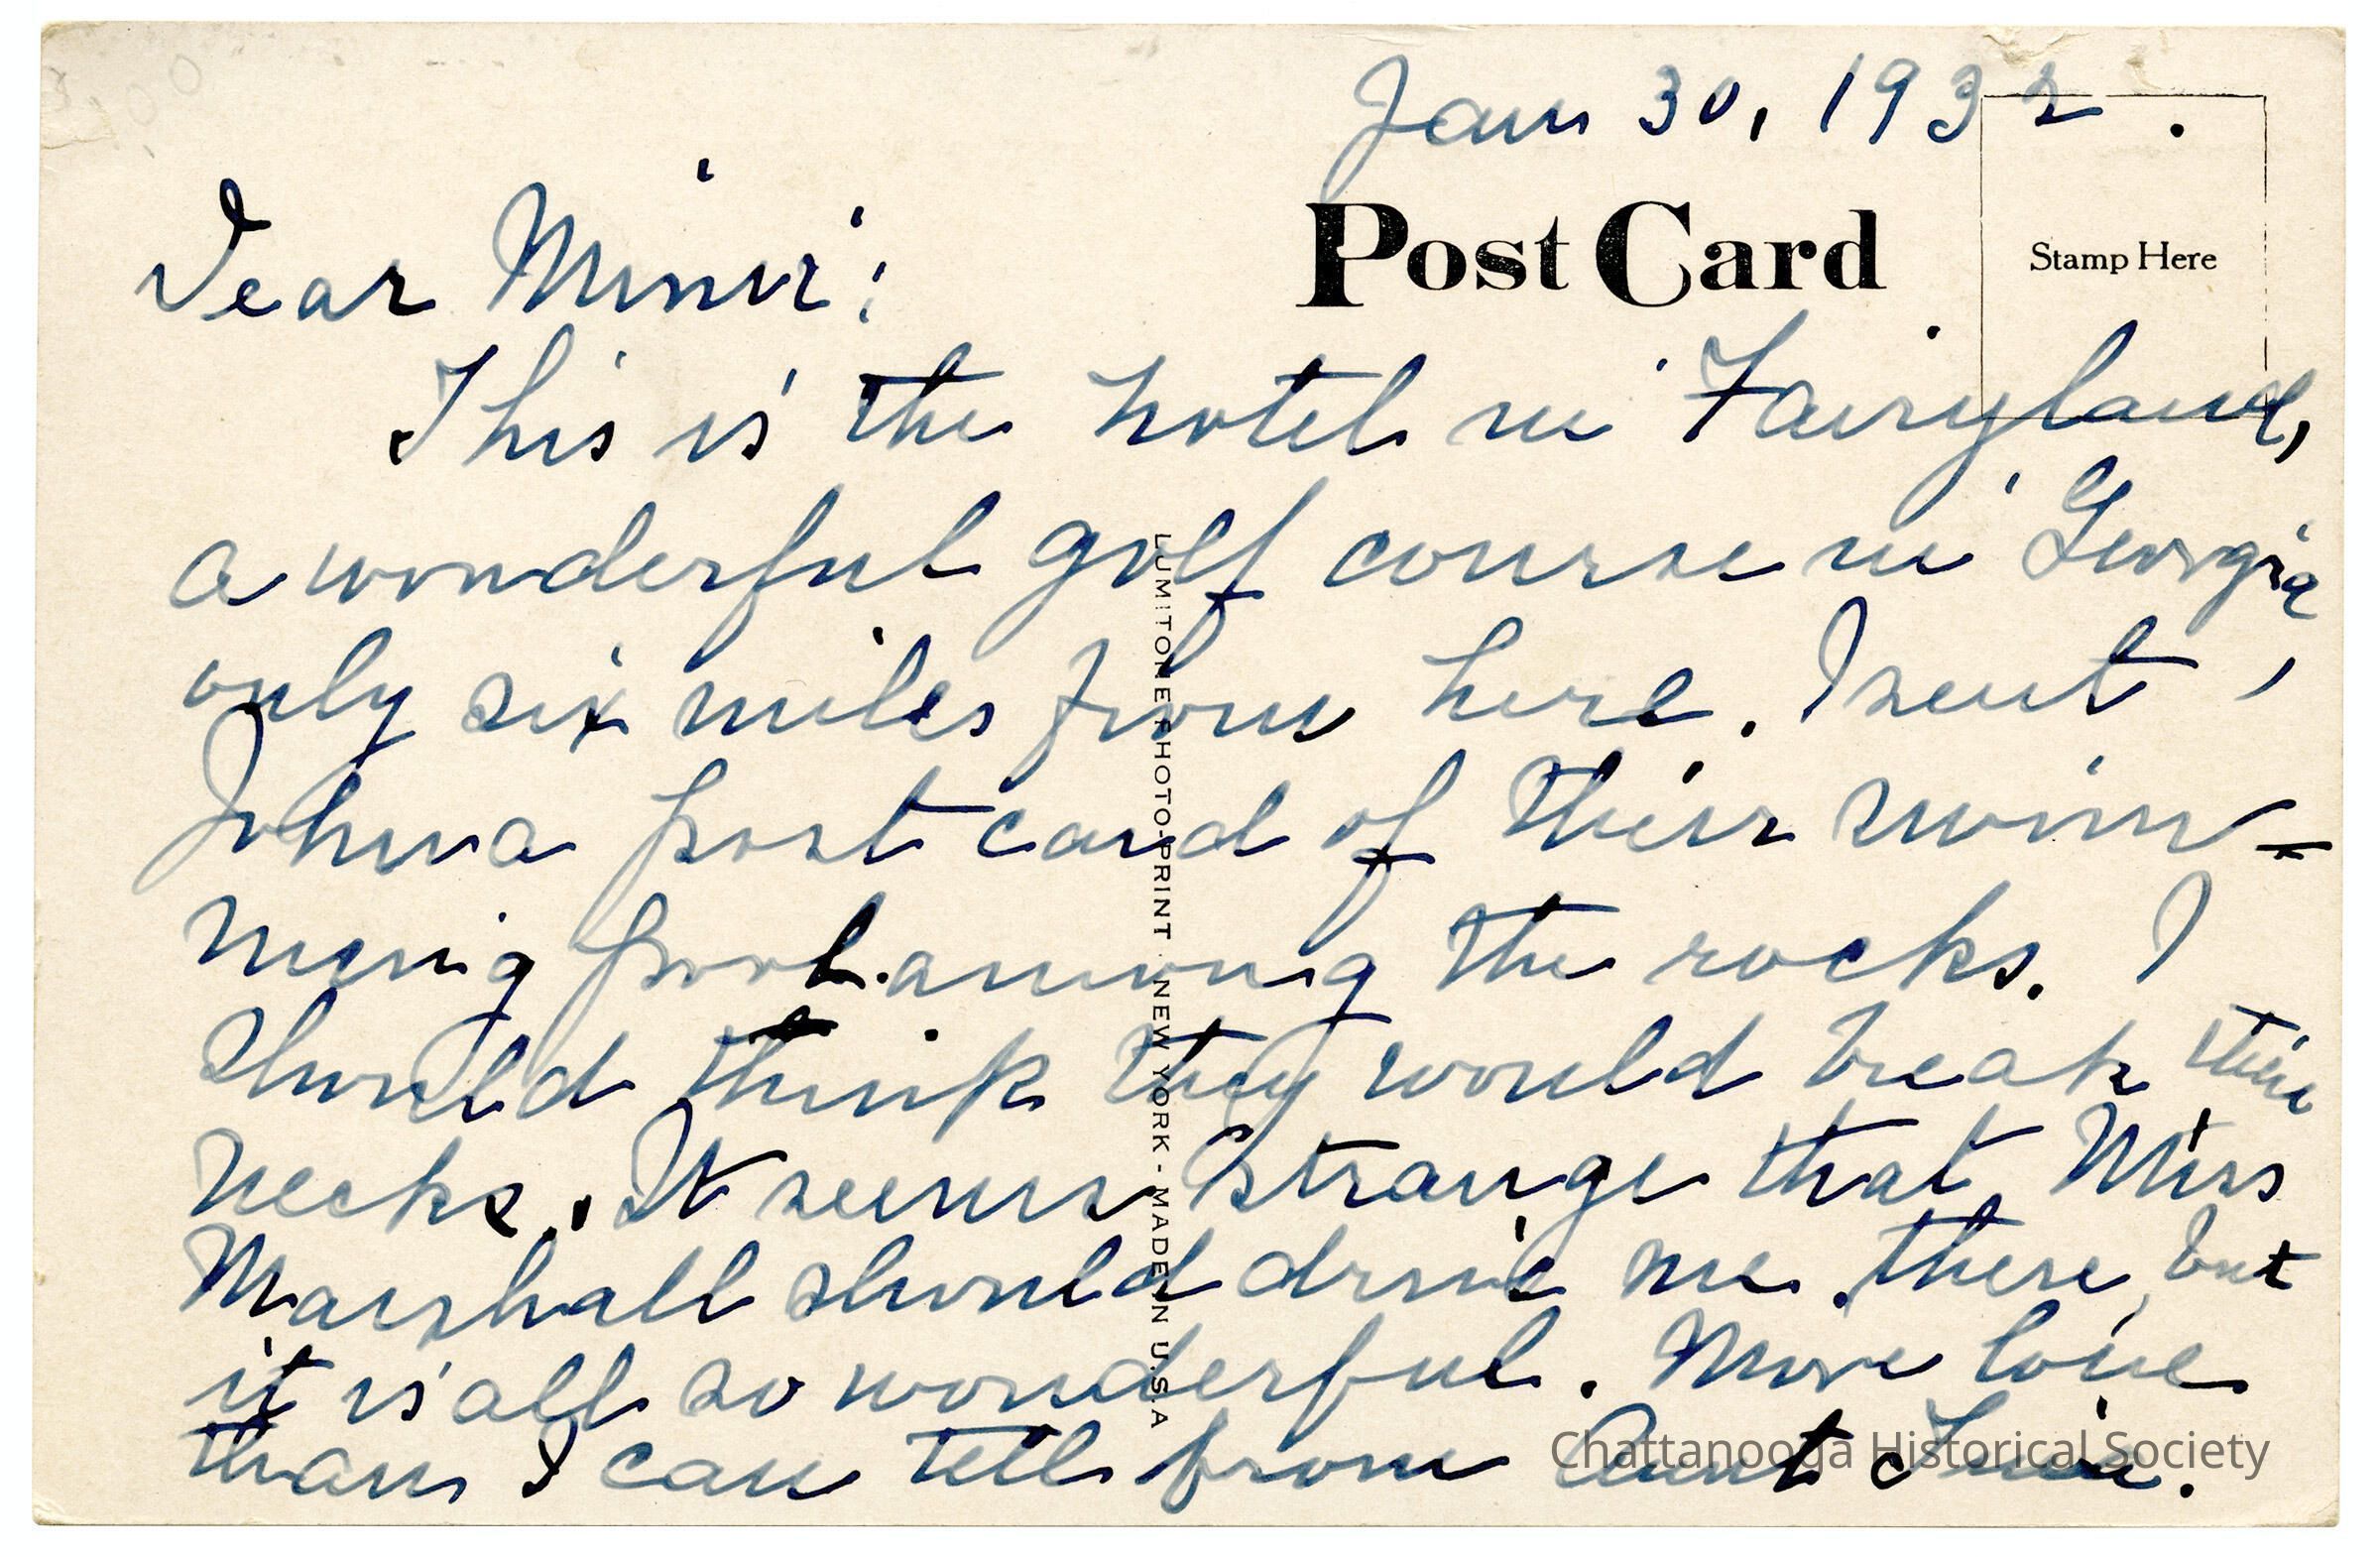 Jan 30, 1932.
Post Card
Stamp Here
Dear Mimi:
This is the hotel in Fairyland,
a wonderful golf course in Georgia
only six miles from here. I sent
John a post card of their swim-
ming pool among the rocks. I
should think they would break their
necks. It seems strange that Miss
Marshall should drive me there, but
it is all so wonderful. More love
than I can tell from Aunt
LUMITONE PHOTO-PRINT · NEW YORK - MADE IN U.S.A
Chattanooga Historical Society